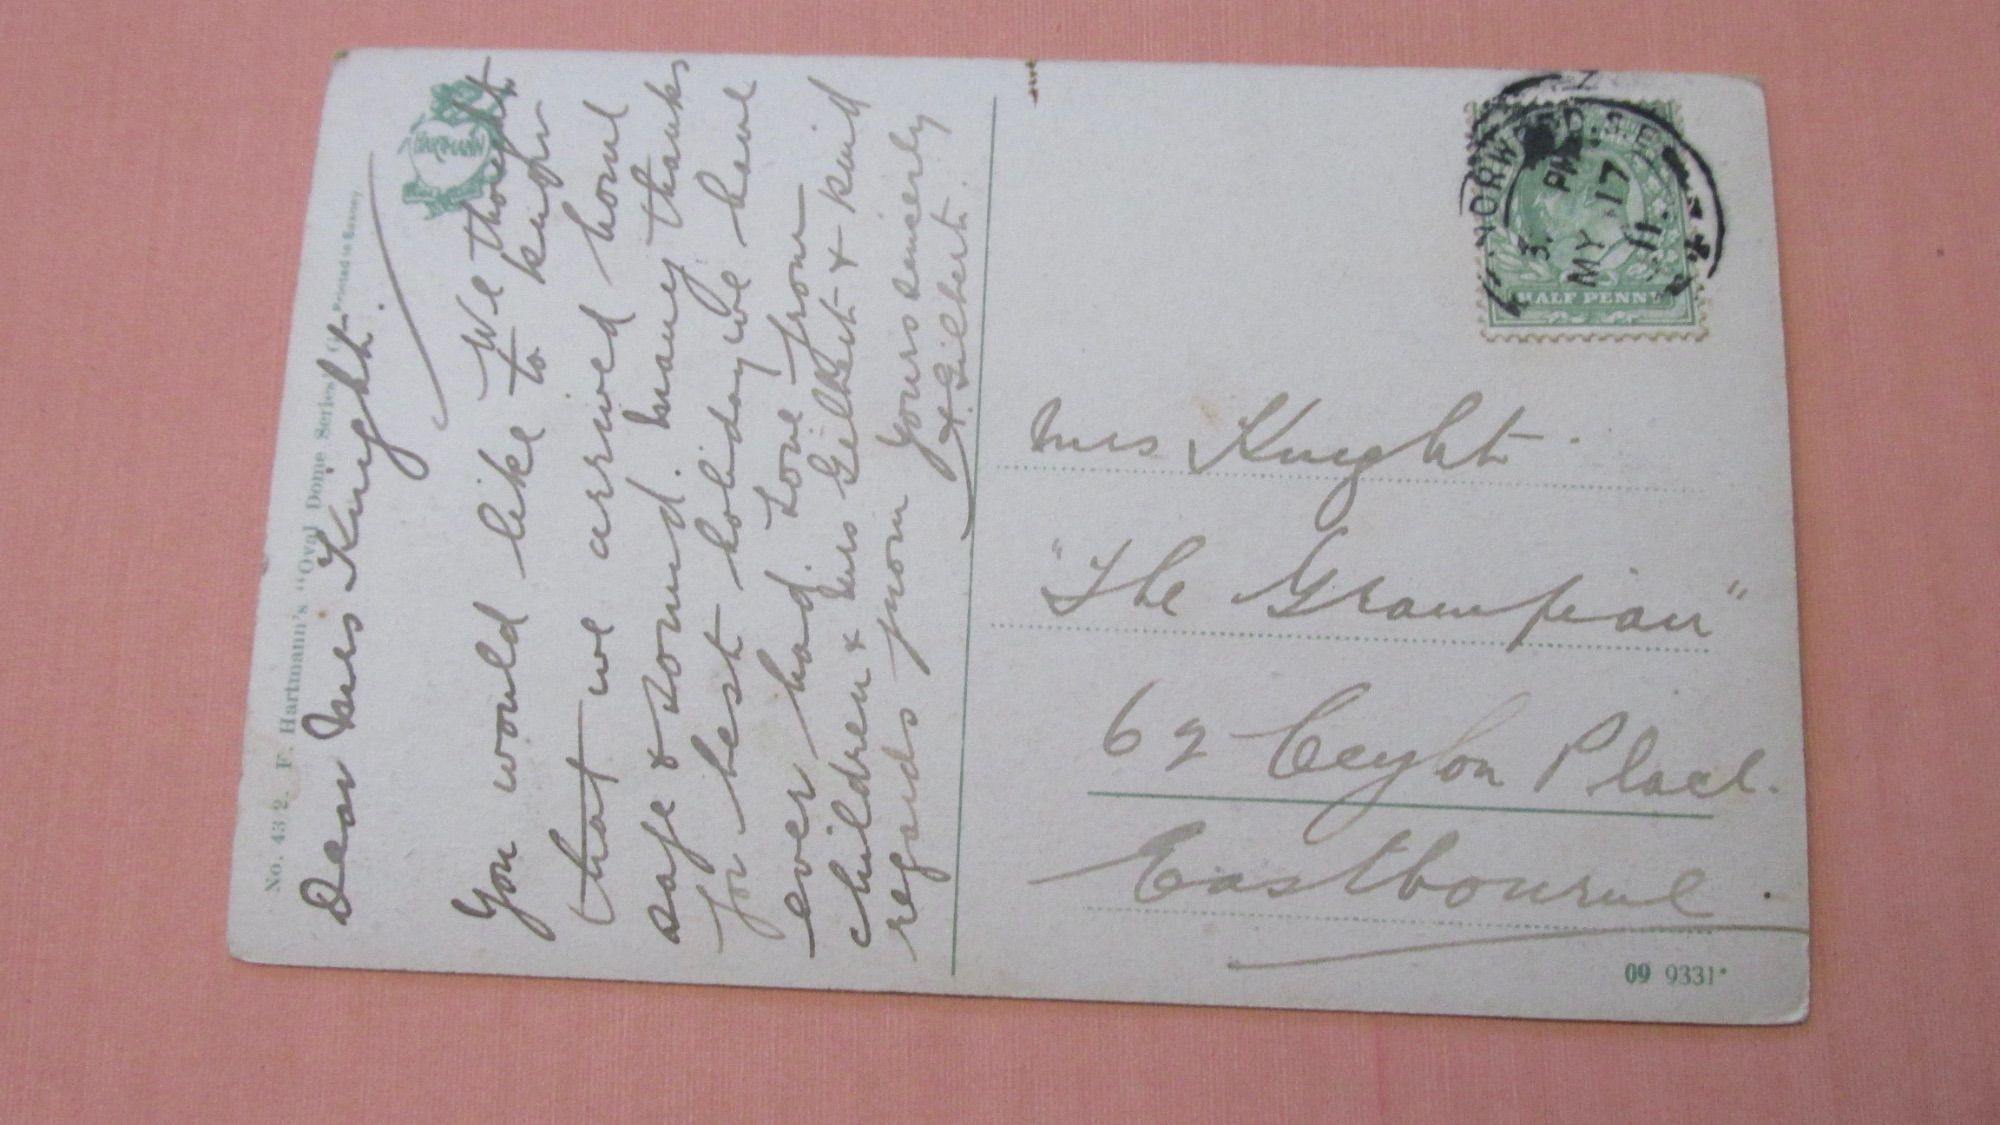 No. 432. F. Hartmann's "Oval Dome Series"
Printed in Saxony
HARTMANN
Dear Mrs Knight.
We thought
You would like to know
that we arrived home
safe & sound. Many thanks
for best holiday we have
ever had. Love from
children & Mrs Gilbert & kind
regards from
Yours sincerely
A. Gilbert.
NORWOOD. S.E.
3. PM
MY 17
11
HALF PENNY
Mrs Knight.
"The Grampian"
62 Ceylon Place.
Eastbourne
09 9331*